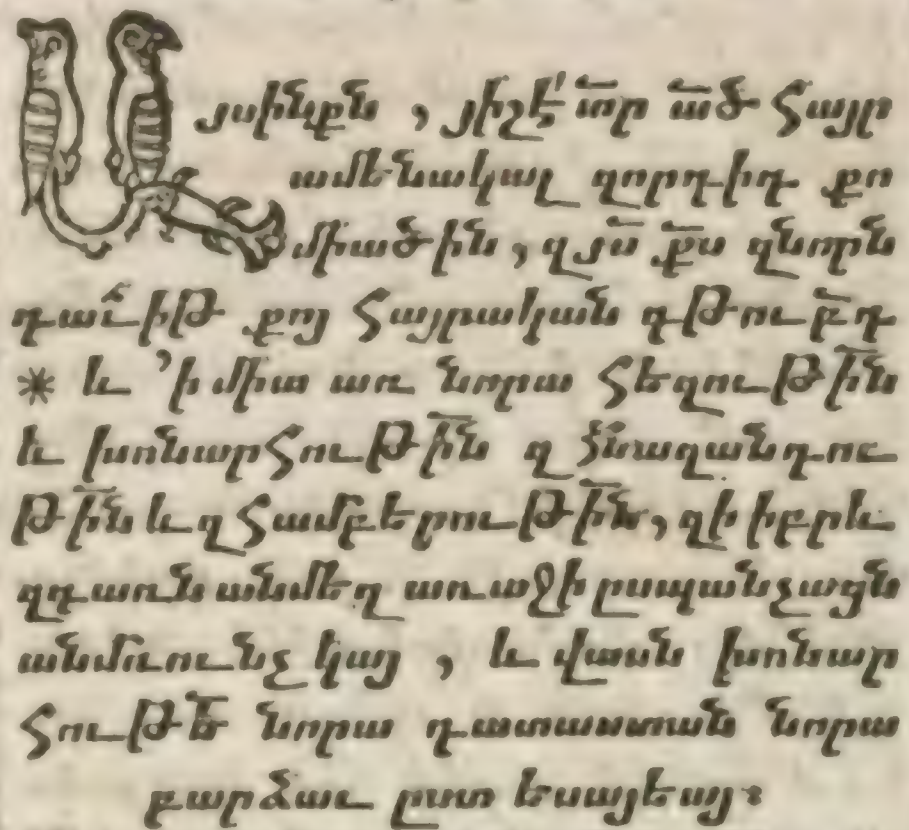 Այսինքն, յիշէ՛ տր ած Հայր
ամենակալ զորդիդ քո
միածին, զյս քս զնորն
դաւիթ քոյ Հայրական գթուբդ
* և ՚ի միտ առ նորա հեզութին
և խոնարհութին զ հնազանդու
թին և զ համբերութին, զի իբրև
զգառն անմեղ առաջի սպանչացն
անմռունչ կայ, և վասն խոնար
հութե նորա դատաստան նորա
բարձաւ ըստ եսայեայ։